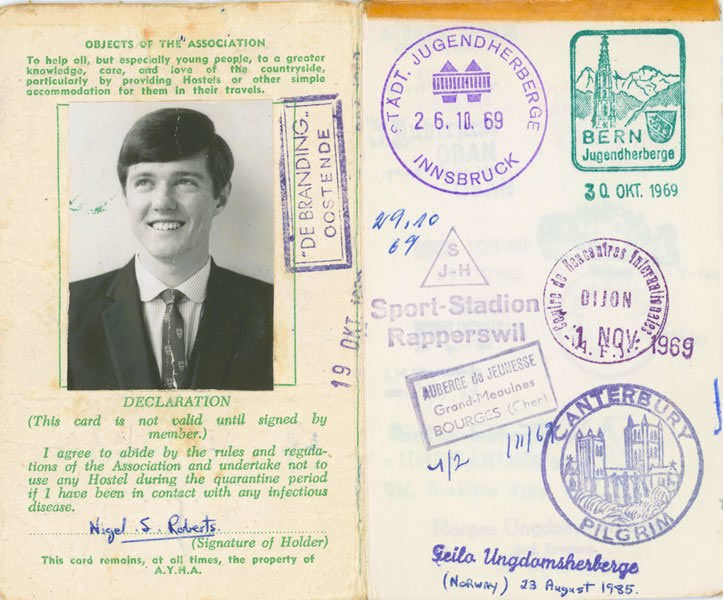 OBJECTS OF THE ASSOCIATION
To help all, but especially young people, to a greater
knowledge, care, and love of the countryside,
particularly by providing Hostels or other simple
accommodation for them in their travels.
"DE BRANDING"
OOSTENDE
19 OKT
DECLARATION
(This card is not valid until signed by
member.)
I agree to abide by the rules and regula-
tions of the Association and undertake not to
use any Hostel during the quarantine period
if I have been in contact with any infectious
disease.
Nigel S. Roberts
(Signature of Holder)
This card remains, at all times, the property of
A.Y.H.A.
STÄDT. JUGENDHERBERGE
26.10.69
INNSBRUCK
BERN
Jugendherberge
30. OKT. 1969
29.10
69
S
J-H
Sport-Stadion
Rapperswil
Centre de Rencontres Internationales
DIJON
1 NOV. 1969
AUBERGE de JEUNESSE
Grand-Meaulnes
BOURGES (Cher)
CANTERBURY
PILGRIM
Geilo Ungdomsherberge
(NORWAY) 23 August 1985.